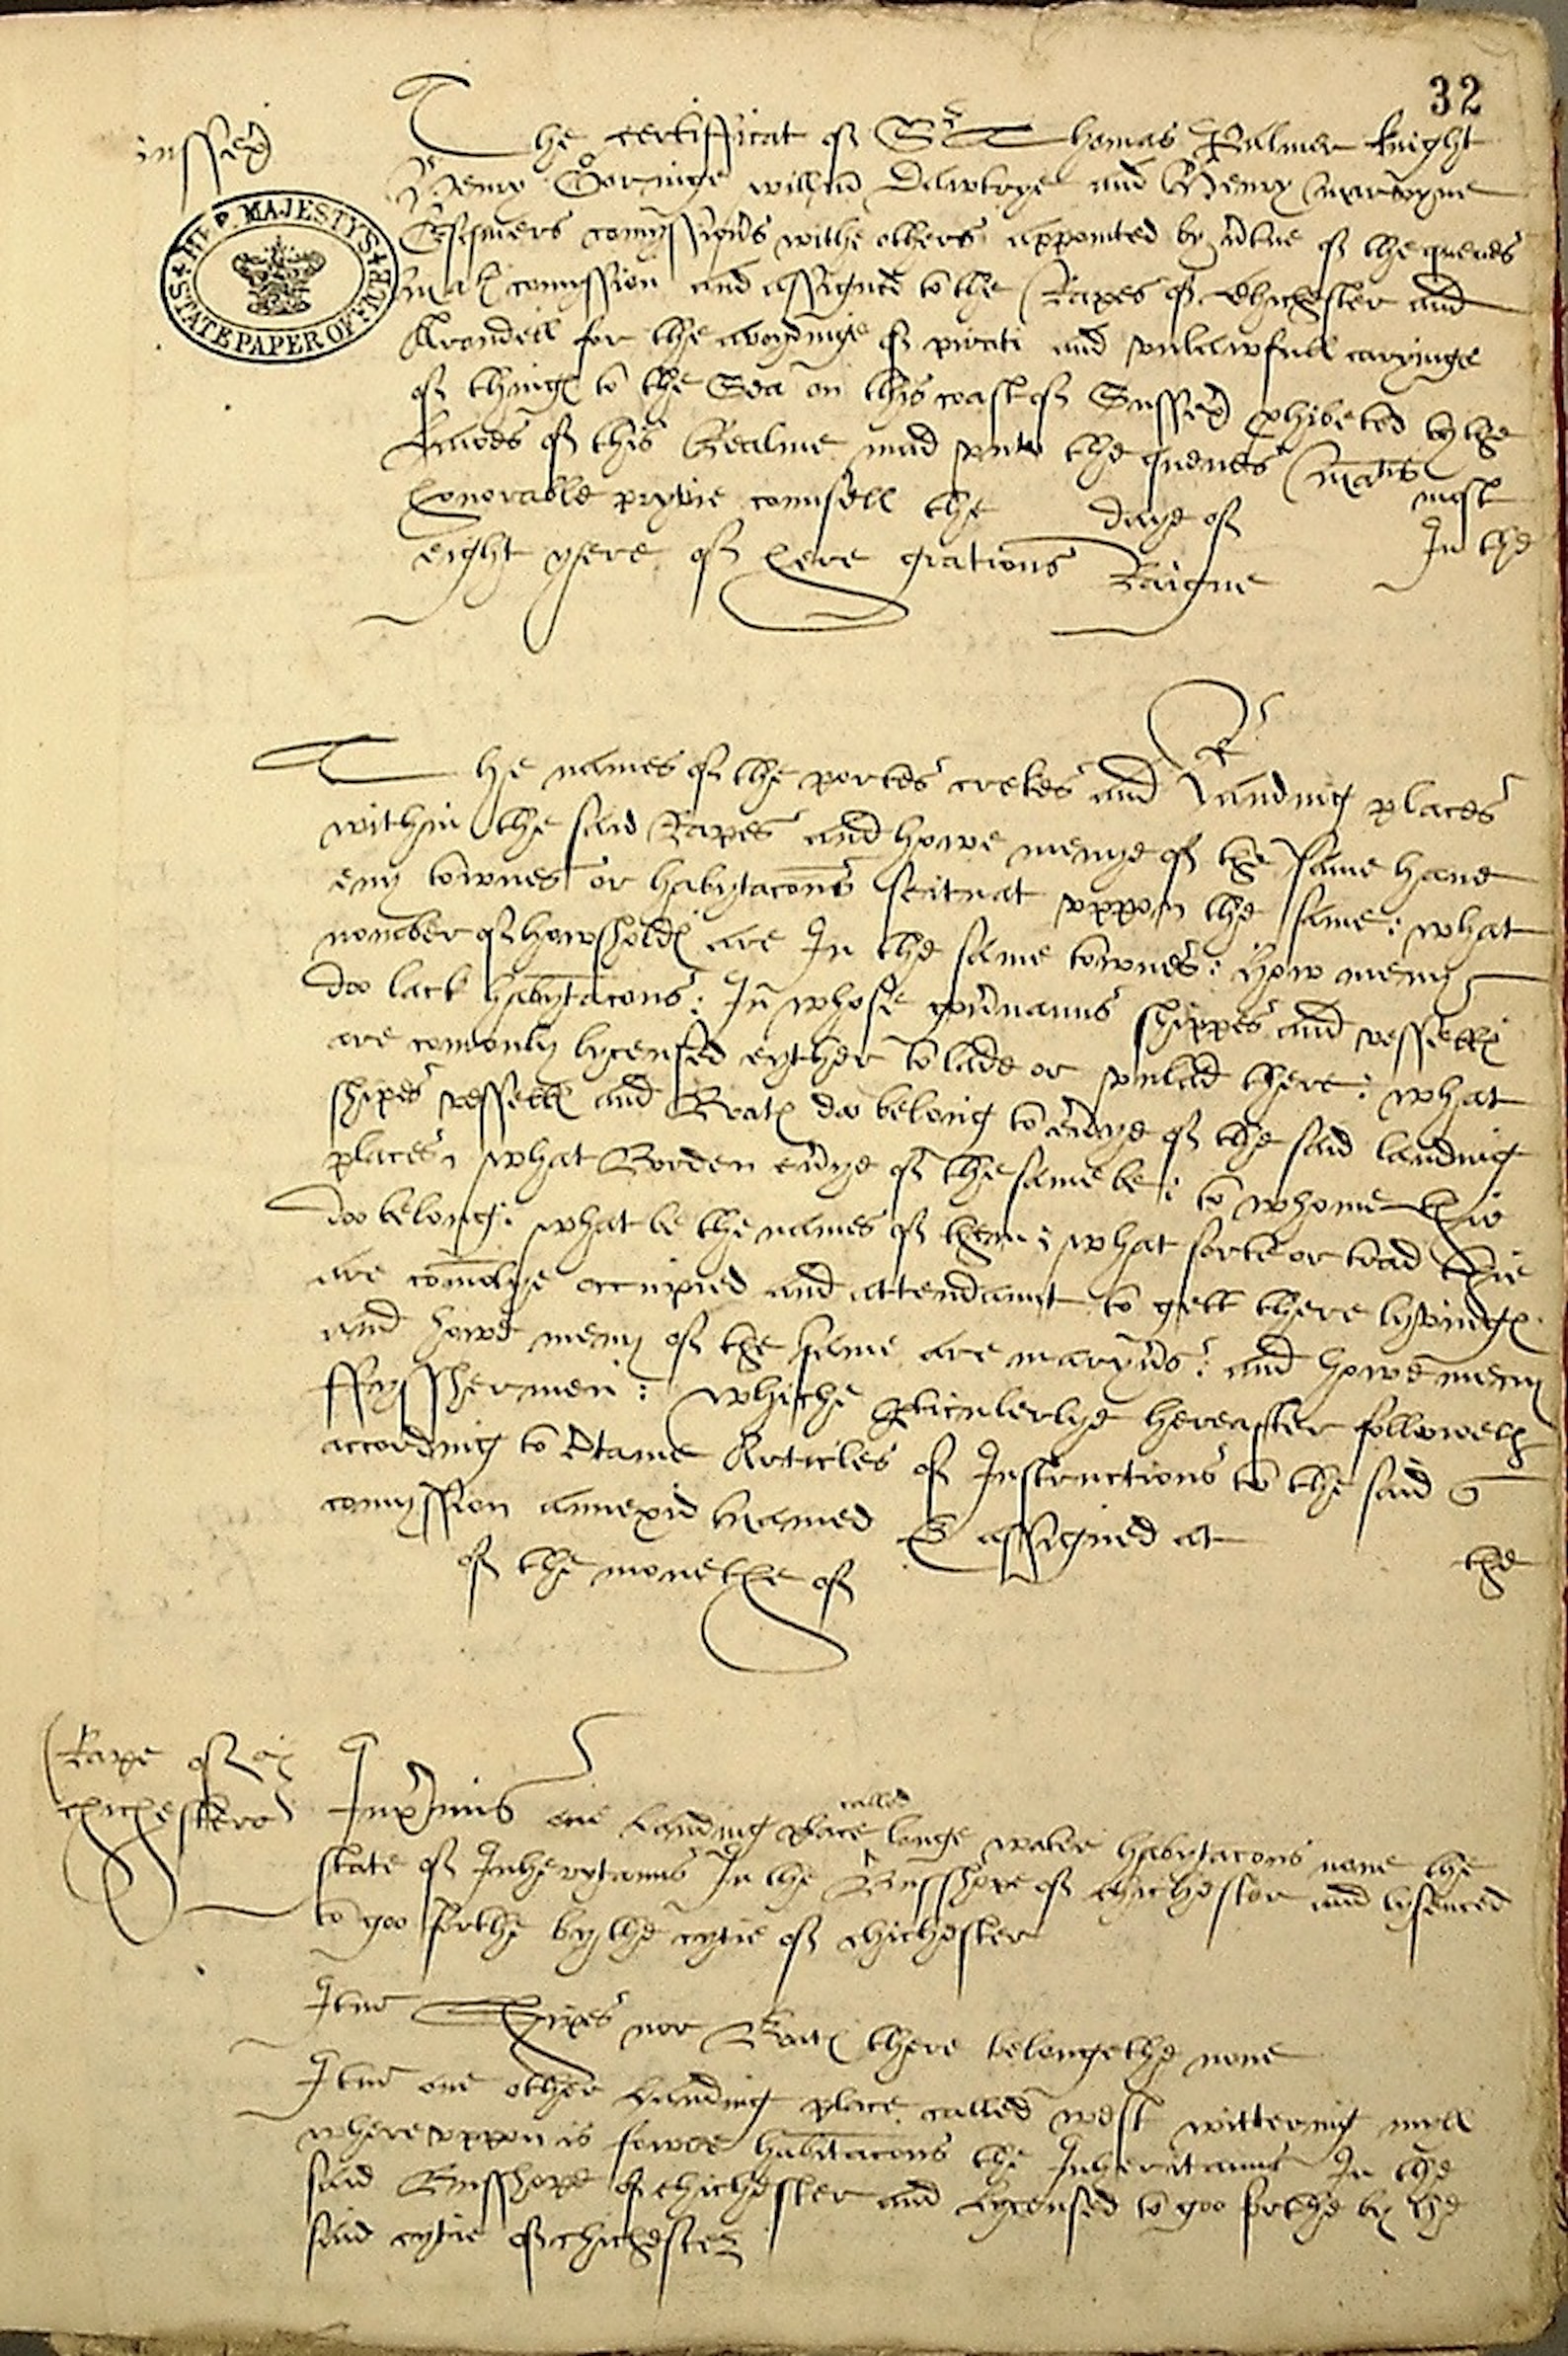 32
Sussex
The certifficat of Sr Thomas Palmer knight
Henry Goringe willm Dawtrye and Henry marvyne
Esquiers comyssiors withe others appointed by vtue of the quenes
matꝭ comyssion and assigned to the Rapes of Chichester and
Arondell for the avoydinge of pirati and vnlawfull caryinge
of thingꝭ to the Sea on this coast of Sussex phibeted by the
Lawes of this Realme mad vnto the quenes matis most
honorable pryvie counsell the daye of In the
eight yere of here gratious Raigne
HER MAJESTYS STATE PAPER OFFICE
The names of the portes crekes and Landing places
within the said Rapes and howe menye of the same have
eny townes or habytacons scituat vppon the same: what
nomber of howsholdꝭ are In the same townes: how meny
do lack habytacons: In whose gounaunc shippes and vessellꝭ
are comonly lycensed eyther to lade or vnlad there: what
shipes vessellꝭ and Botꝭ do belong to evye of the said landing
places, what Borden evye of the same be: to whome thie
do belong: what be the names of them: what sorte or trad thie
are comonlye occupied and attendaunt to gett there lyvingꝭ
and howe meny of the same are maryns: and howe meny
ffysshermen: whiche pticulerlye hereafter followeth
according to ctaine Articles of Instructions to the said
comyssion annexid named & assigned at the
of the monethe of
Rape of
chichester
Inprimis one Landing place called longe water habytacons none the
state of Inherytaunc In the Busshope of chichester and lysenced
to goo forthe by the cytie of chichester
Itm Shipes nor Botꝭ there belongethe none
Itm one other Landing place called west wittering mell
where vppon is fowre habitacons the Inheritaunc In the
said Busshope of chichester and Lycensed to goo forthe by the
said cytie of chichester